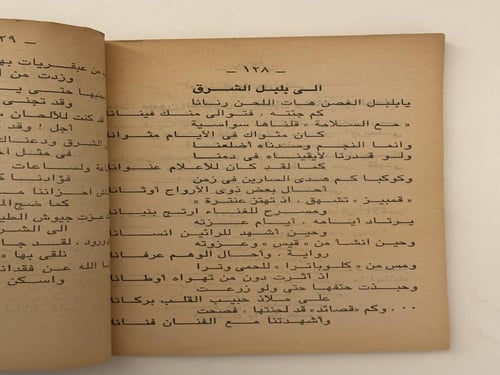 — ١٢٨ —
الى بلبل الشرق
يابلبل الغصن هات اللحن رنانا
كم جئته ، فتوالى منك فينانا
« مع السلامة » قلناها سواسية
كان مثواك فى الأيام مثوانا
وانما النجم وسدناه أضلعنا
ولو قدرنا لأبقيناه فى دمنا
كما لقد كان للأعلام عنوانا
وكوكبا كم هدى السارين فى زمن
أحال بعض ذوى الأرواح أوثانا
« قمبيز » تشهق ، اذ تهتز عنترة »
ومسرح للغناء ارتج بنيانا
يرتاد أيامه ، أيام عزته
وحين أشهد للرائين انسانا
وحين انشا من « قيس » وعزوته
رواية ، وأحال الوهم عرفانا
ومس من « كلوباترا » للحمى وترا
اذ أثرت دون من تهواه أوطانا
وحبذت حتفها حتى ولو زرعت
على ملاذ حبيب القلب بركانا
٠٠ وكم « قصائد » قد لحنتها ، فصحت
وأشهدتنا مع الفنان فنانا
— ١٣٩
من عبقريات بها
وزدت من ا
وقد تجنى
كنت للألحان م
أجل ! وقد
الشرق ودعناك
فى مثل أ
ولساعات
فؤادنا ك
احزاننا م
كما ضج ال
عزت جيوش الط
الى الشر
ورود ، لقد جا
نلقى بها «
الله عن فقدان
واسكن